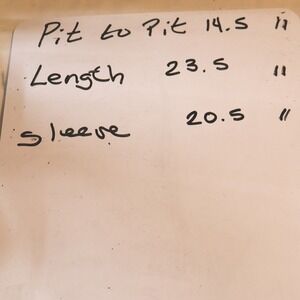 Pit to Pit 14.5 "
Length 23.5 "
sleeve 20.5 "